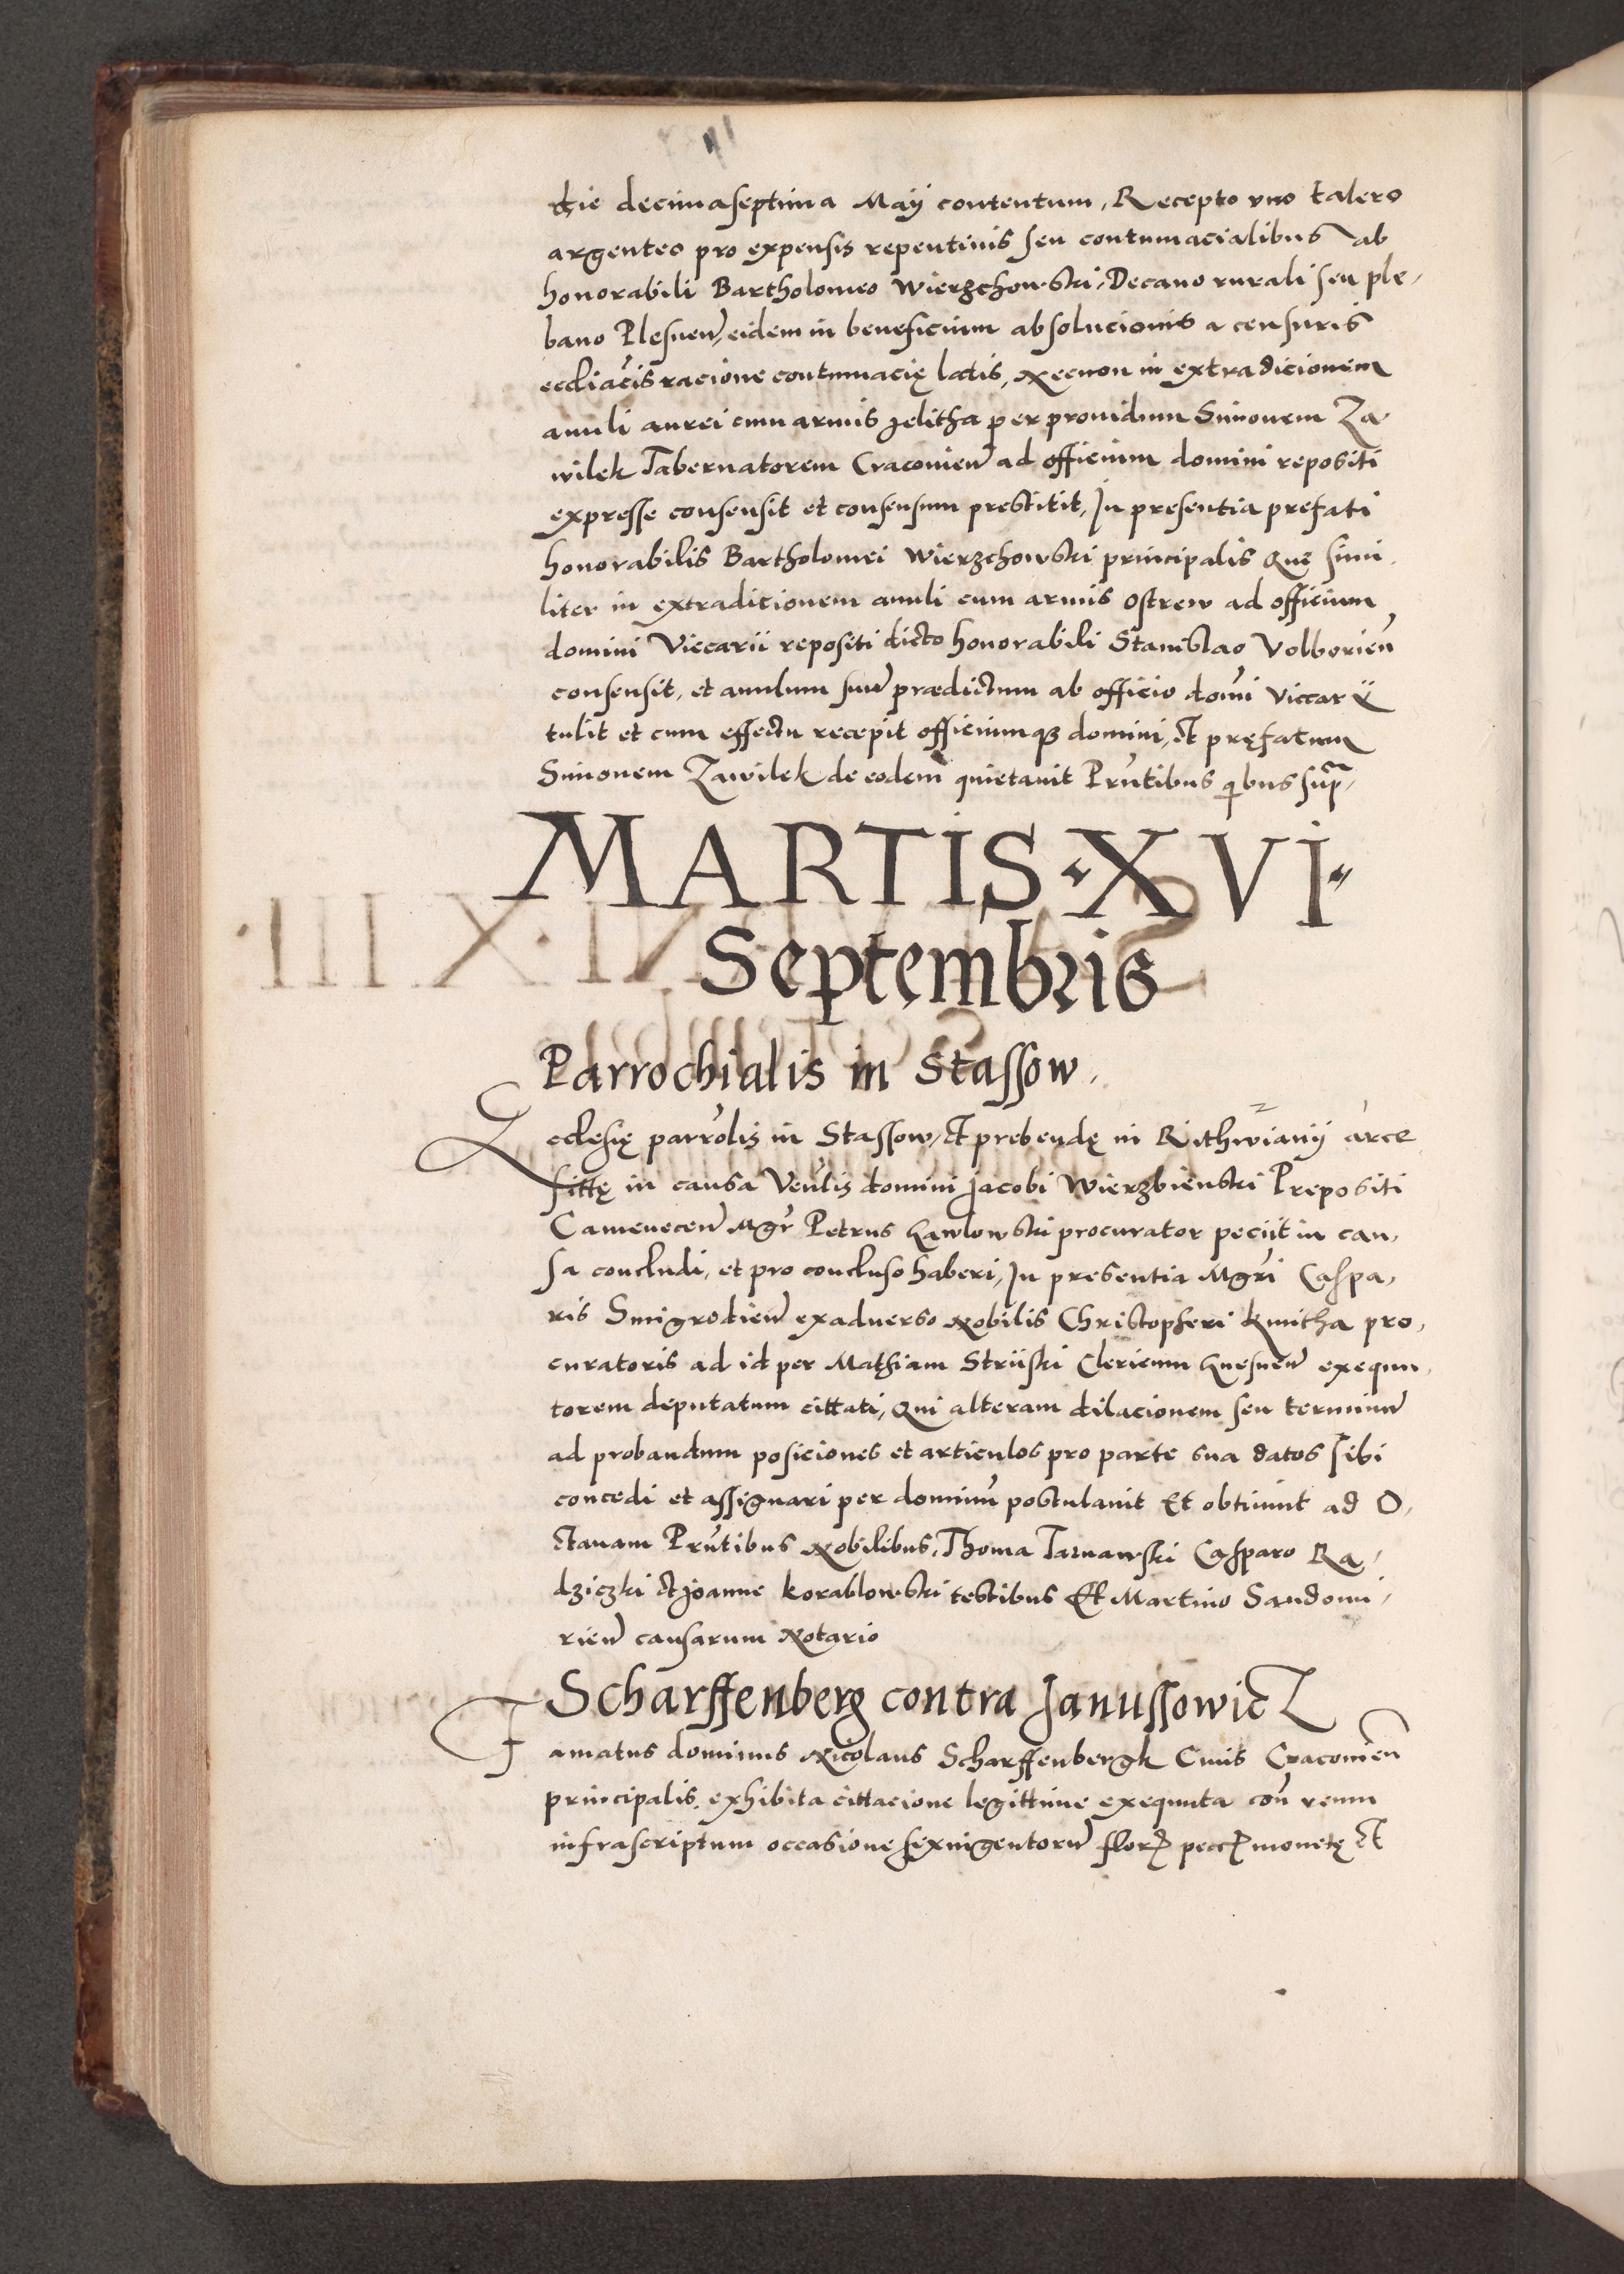 die decimaseptima Maij contentum, Recepto vno talero
argenteo pro expensis repentinis seu contumacialibus ab
honorabili Bartholomeo Wierzchowski, Decano rurali seu ple,
bano Plesuen̄, eidem in beneficium absolucionis a censuris
eccl̄iacis racione contumacię latis, Necnon in extradicionem
anuli aurei cum armis Jelitha per prouidum Simonem Za,
wilek Tabernatorem Cracouien̄ ad officium domini repositi
expresse consensit et consensum prestitit, In presentia prefati
honorabilis Bartholomei Wierzchowski principalis Que simi,
liter in extradicionem anuli cum armis Ostrew ad officium
domini Viccarii repositi dicto honorabili Stanislao Volborien̄
consensit, et anulum suum̄ prædictum ab officio domi̅ Viccarii
tulit et cum effectu recepit officiumqꝫ domini, et pręfatum
Simonem Zawilek de eodem quietauit Prn̄tibus quibus sup̄,
MARTIS · XVI ·
Septembris
Parrochialis in Stassow,
Ecclesię parro̅lis in Stassow, et prebendę in Rithwianij arce
sittę in causa Ven̅lis domini Jacobi Wierzbienski Prepositi
Camenecen̄ Mgr̄ Petrus Gawlowski procurator peciit in cau,
sa concludi, et pro concluso haberi, In presentia Mgr̄i Caspa,
ris Smigrodien̄ exaduerso Nobilis Christopheri Kmitha pro,
curatoris ad id per Mathiam Striiski Clericum Gnesnen̄ exequu,
torem deputatum cittati, Qui alteram dilacionem seu terminū
ad probandum posiciones et articulos pro parte sua datos sibi
concedi et assignari per dominū postulauit Et obtinuit ad O,
ctauam Prn̄tibus Nobilibus, Thoma Tarnawski Casparo Ra,
dziczki et Joanne Korablowski testibus Et Martino Sandomi,
rien̄ causarum Notario
Scharffenberg contra Janussowicz
Famatus dominus Nicolaus Scharffenbergk Ciuis Cracouien̄
principalis, exhibita cittacione legittime exequuta con̄ reum
infrascriptum occasione sexingentorū flor̄ pecc̄ monetę et